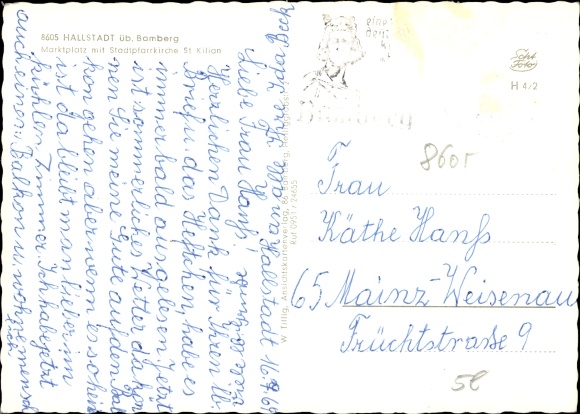 8605 HALLSTADT üb. Bamberg
Marktplatz mit Stadtpfarrkirche St. Kilian
Hallstadt 16.7.69
Liebe Frau Hanß
Herzlichen Dank für Ihren lb.
Brief u. das Heftchen, habe es
immer bald ausgelesen. Jetzt
ist sommerliches Wetter da kön
nen Sie meine Gute auf den Bal
kon gehen aber wenn es so heiß
ist da bleibt man lieber im
kühlen Zimmer. Ich habe jetzt
auch einen Balkon u.
W. Tillig, Ansichtskartenverlag, 86 Bamberg,
Ruf 0951 / 24055
H 4/2
8605
Frau
Käthe Hanß
65 Mainz-Weisenau
Früchtstraße 9
5c